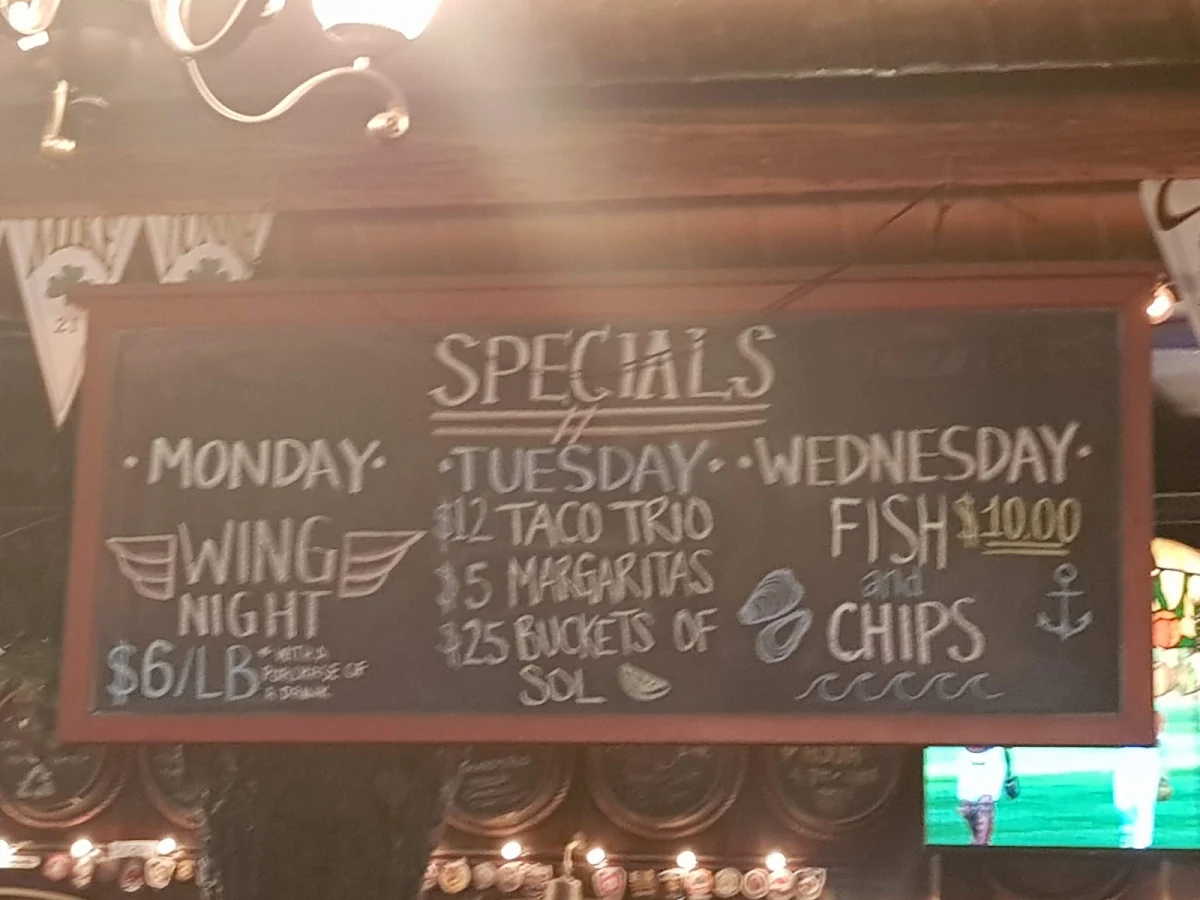 SPECIALS
·MONDAY·
WING
NIGHT
$6/LB
*WITH A
PURCHASE OF
A DRINK
·TUESDAY·
$12 TACO TRIO
$5 MARGARITAS
$25 BUCKETS OF
SOL
·WEDNESDAY·
FISH $10.00
and
CHIPS
21